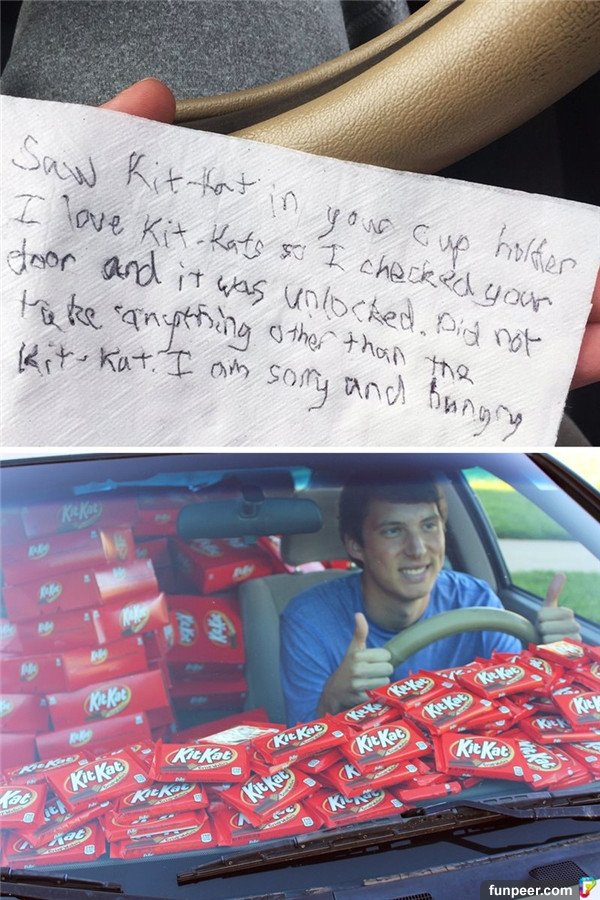 Saw Kit-Kat in your cup holder
I love Kit-Kats so I checked your
door and it was unlocked. Did not
take anything other than the
Kit-Kat. I am sorry and hungry
KitKat
KitKat
KitKat
KitKat
KitKat
KitKat
KitKat
KitKat
KitKat
KitKat
KitKat
KitKat
KitKat
KitKat
funpeer.com